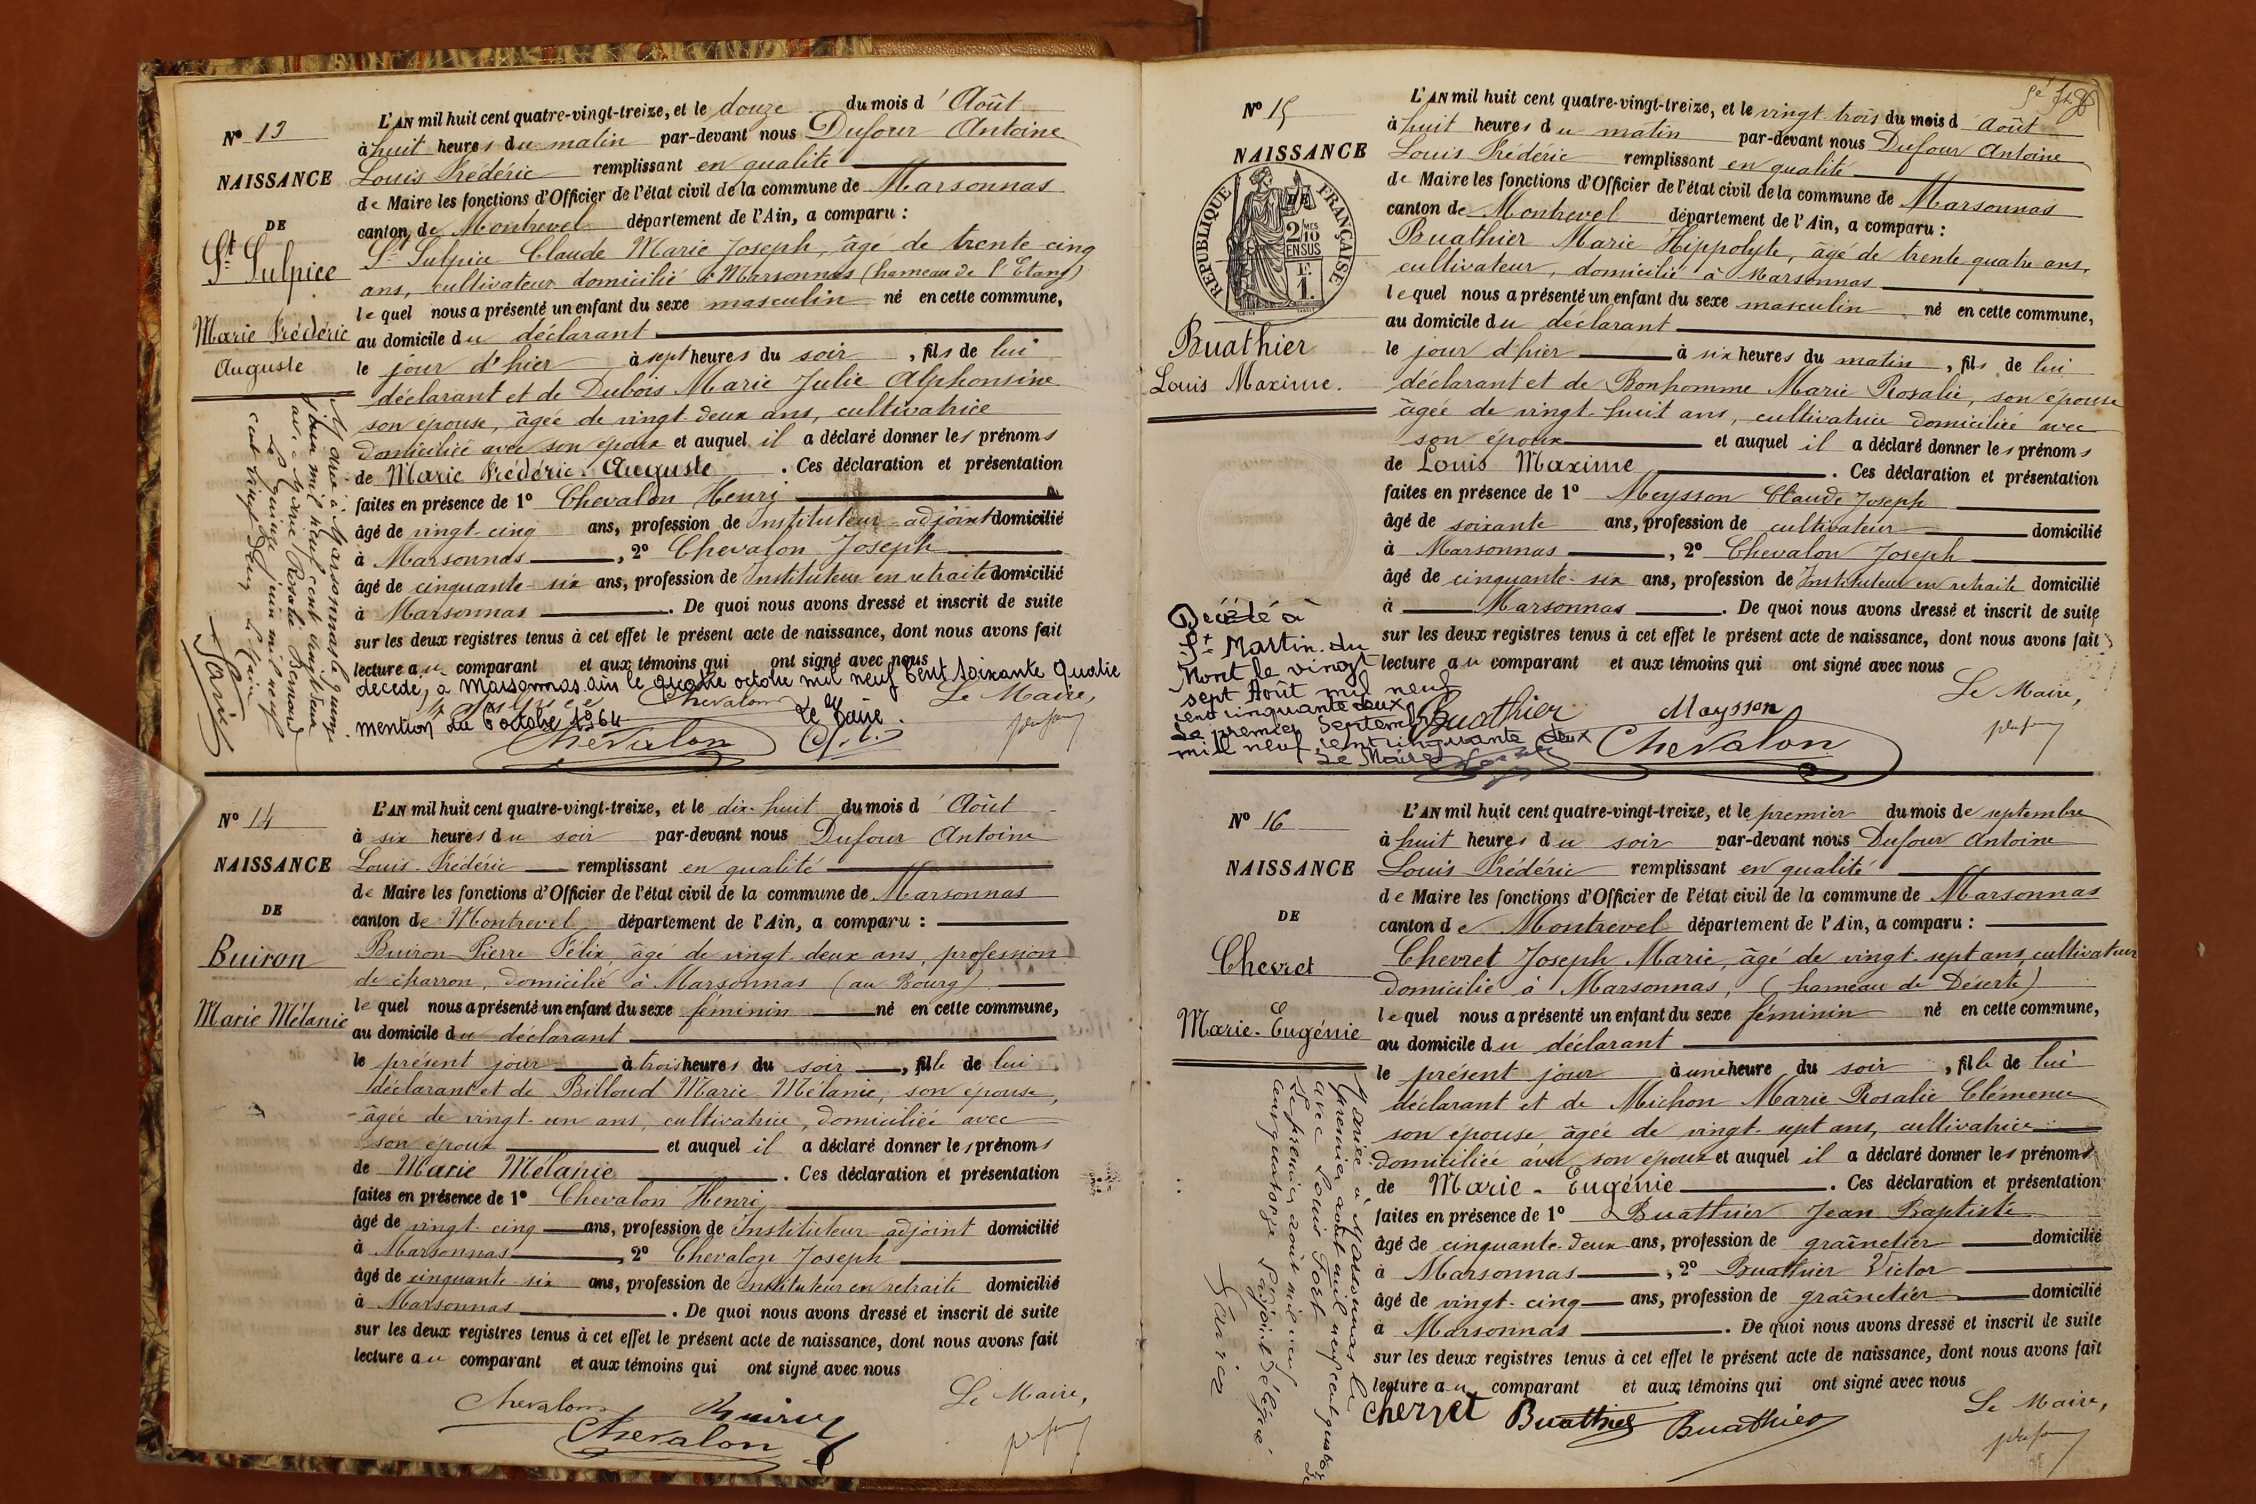 N° 13
NAISSANCE
DE
St Sulpice
Marie Frédéric
Auguste
L'AN mil huit cent quatre-vingt-treize, et le douze du mois d'Août
à huit heures du matin par-devant nous Dufour Antoine
Louis Frédéric remplissant en qualité
de Maire les fonctions d'Officier de l'état civil de la commune de Marsonnas
canton de Montrevel département de l'Ain, a comparu :
St Sulpice Claude Marie Joseph, âgé de trente cinq
ans, cultivateur domicilié à Marsonnas (hameau de l'Etang)
lequel nous a présenté un enfant du sexe masculin né en cette commune,
au domicile du déclarant
le jour d'hier à sept heures du soir, fils de lui
déclarant et de Dubois Marie Julie Alphonsine
son épouse, âgée de vingt deux ans, cultivatrice
domiciliée avec son époux et auquel il a déclaré donner les prénoms
de Marie Frédéric Auguste. Ces déclaration et présentation
faites en présence de 1° Chevalon Henri
âgé de vingt-cinq ans, profession de Instituteur-adjoint domicilié
à Marsonnas, 2° Chevalon Joseph
âgé de cinquante-six ans, profession de Instituteur en retraite domicilié
à Marsonnas. De quoi nous avons dressé et inscrit de suite
sur les deux registres tenus à cet effet le présent acte de naissance, dont nous avons fait
lecture au comparant et aux témoins qui ont signé avec nous
décédé, à Marsonnas ain le quatre octobre mil neuf cent soixante quatre
Chevalon
Le Maire,
mention du 6 octobre 1964
Le Maire.
Chevalon
Marié à Marsonnas le quinze
juin mil neuf cent vingt deux
avec Marie Rosalie Bernard
Le quinze juin mil neuf
cent vingt deux Le Maire
N° 14
NAISSANCE
DE
Buiron
Marie Mélanie
L'AN mil huit cent quatre-vingt-treize, et le dix-huit du mois d'Août
à six heures du soir par-devant nous Dufour Antoine
Louis Frédéric remplissant en qualité
de Maire les fonctions d'Officier de l'état civil de la commune de Marsonnas
canton de Montrevel département de l'Ain, a comparu :
Buiron Pierre Félix, âgé de vingt deux ans, profession
de charron, domicilié à Marsonnas (au Bourg)
lequel nous a présenté un enfant du sexe féminin né en cette commune,
au domicile du déclarant
le présent jour à trois heures du soir, fille de lui
déclarant et de Billoud Marie Mélanie, son épouse,
âgée de vingt-un ans, cultivatrice, domiciliée avec
son époux et auquel il a déclaré donner les prénoms
de Marie Mélanie. Ces déclaration et présentation
faites en présence de 1° Chevalon Henri
âgé de vingt-cinq ans, profession de Instituteur adjoint domicilié
à Marsonnas, 2° Chevalon Joseph
âgé de cinquante-six ans, profession de Instituteur en retraite domicilié
à Marsonnas. De quoi nous avons dressé et inscrit de suite
sur les deux registres tenus à cet effet le présent acte de naissance, dont nous avons fait
lecture au comparant et aux témoins qui ont signé avec nous
Chevalon Buiron
Le Maire,
Chevalon
N° 15
NAISSANCE
DE
RÉPUBLIQUE FRANÇAISE
2 MES 10
EN SUS
F.
1.
Buathier
Louis Maxime.
L'AN mil huit cent quatre-vingt-treize, et le vingt-trois du mois d'Août
à huit heures du matin par-devant nous Dufour Antoine
Louis Frédéric remplissant en qualité
de Maire les fonctions d'Officier de l'état civil de la commune de Marsonnas
canton de Montrevel département de l'Ain, a comparu :
Buathier Marie Hippolyte, âgé de trente quatre ans,
cultivateur, domicilié à Marsonnas
lequel nous a présenté un enfant du sexe masculin né en cette commune,
au domicile du déclarant
le jour d'hier à six heures du matin, fils de lui
déclarant et de Bonhomme Marie Rosalie, son épouse
âgée de vingt-huit ans, cultivatrice domiciliée avec
son époux et auquel il a déclaré donner les prénoms
de Louis Maxime. Ces déclaration et présentation
faites en présence de 1° Meysson Claude Joseph
âgé de soixante ans, profession de cultivateur domicilié
à Marsonnas, 2° Chevalon Joseph
âgé de cinquante-six ans, profession de Instituteur en retraite domicilié
à Marsonnas. De quoi nous avons dressé et inscrit de suite
sur les deux registres tenus à cet effet le présent acte de naissance, dont nous avons fait
lecture au comparant et aux témoins qui ont signé avec nous
Le Maire,
Buathier Meysson
Chevalon
Décédé à
St Martin du
Mont le vingt
sept Août mil neuf
cent cinquante deux
Le premier Septembre
mil neuf cent cinquante deux
Le Maire
N° 16
NAISSANCE
DE
Chevret
Marie-Eugénie
L'AN mil huit cent quatre-vingt-treize, et le premier du mois de septembre
à huit heures du soir par-devant nous Dufour Antoine
Louis Frédéric remplissant en qualité
de Maire les fonctions d'Officier de l'état civil de la commune de Marsonnas
canton de Montrevel département de l'Ain, a comparu :
Chevret Joseph Marie, âgé de vingt-sept ans, cultivateur
domicilié à Marsonnas, (hameau de Déserte)
lequel nous a présenté un enfant du sexe féminin né en cette commune,
au domicile du déclarant
le présent jour à une heure du soir, fille de lui
déclarant et de Michon Marie Rosalie Clémence
son épouse, âgée de vingt-sept ans, cultivatrice
domiciliée avec son époux et auquel il a déclaré donner les prénoms
de Marie-Eugénie. Ces déclaration et présentation
faites en présence de 1° Buathier Jean Baptiste
âgé de cinquante-deux ans, profession de graînetier domicilié
à Marsonnas, 2° Buathier Victor
âgé de vingt-cinq ans, profession de graînetier domicilié
à Marsonnas. De quoi nous avons dressé et inscrit de suite
sur les deux registres tenus à cet effet le présent acte de naissance, dont nous avons fait
lecture au comparant et aux témoins qui ont signé avec nous
Le Maire,
Chevret Buathier Buathier
Mariée à Marsonnas le
premier août mil neuf cent quatorze
avec Louis
Le premier août mil neuf
cent quatorze L'adjoint délégué